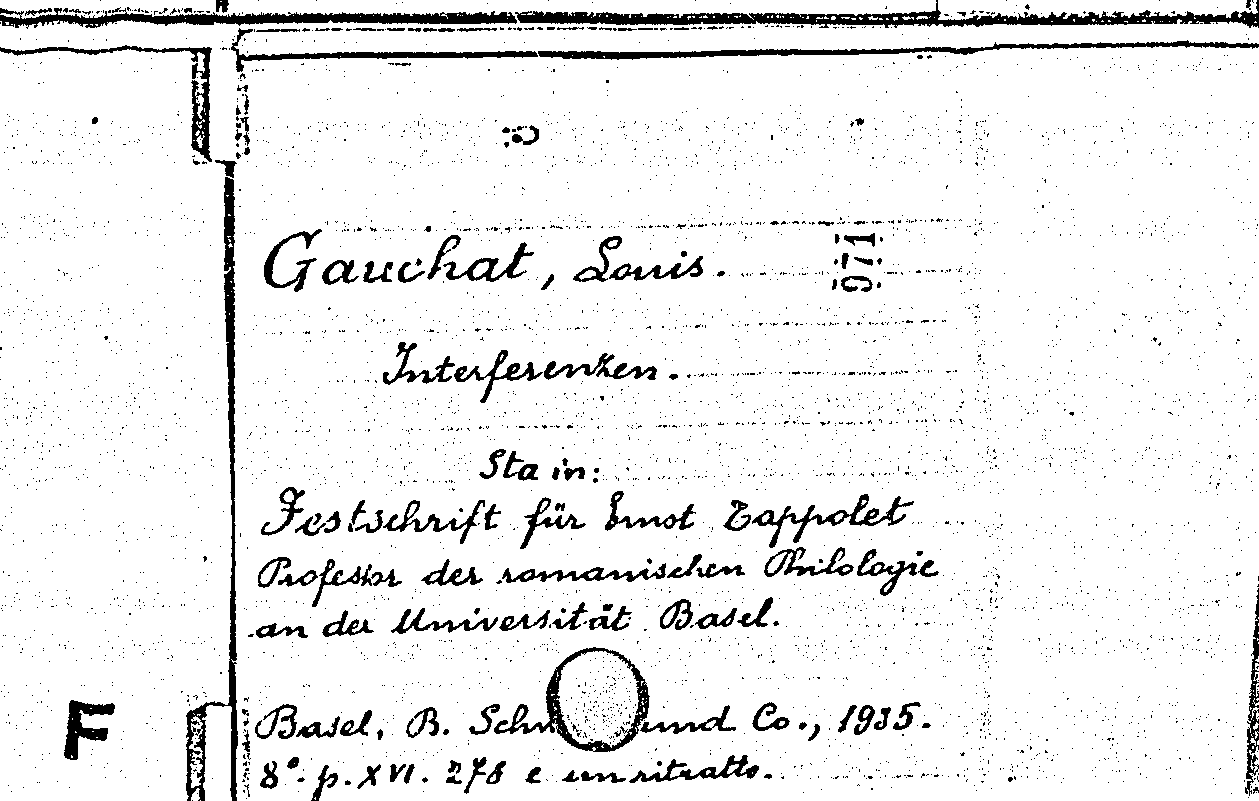 Gauchat, Louis.
971
Interferenzen.
Sta in:
Festschrift für Ernst Tappolet
Professor der romanischen Philologie
an der Universität Basel.
Basel, B. Schw und Co., 1935.
8°. p. XVI. 278 e un ritratto.
F